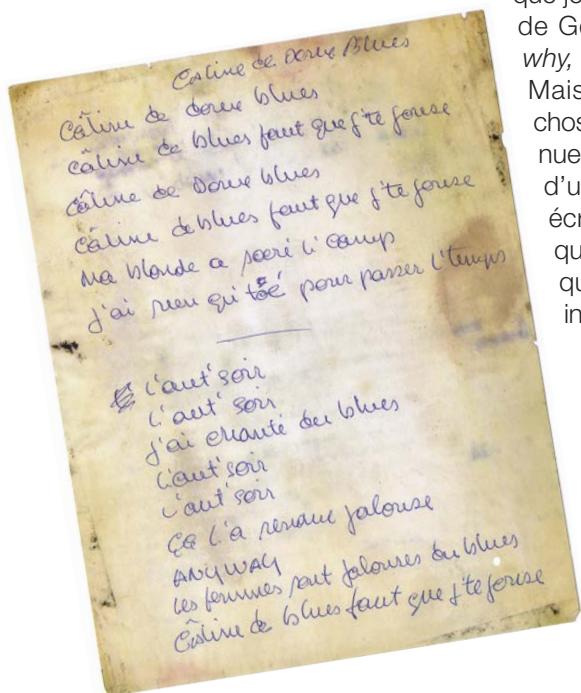 Câline de Doux Blues
Câline de doux blues
câline de blues faut que j'te jouse
câline de Doux blues
câline de blues faut que j'te jouse
Ma blonde a sacré l'camp
J'ai rien qu'toé pour passer l'temps
L'aut' soir
L'aut' soir
J'ai chanté du blues
L'aut' soir
L'aut' soir
Ça l'a rendue jalouse
ANYWAY
Les femmes sont jalouses du blues
Câline de blues faut que j'te jouse
que je
de Ge
why,
Mais
chos
nue
d'u
écr
qu
qu
in